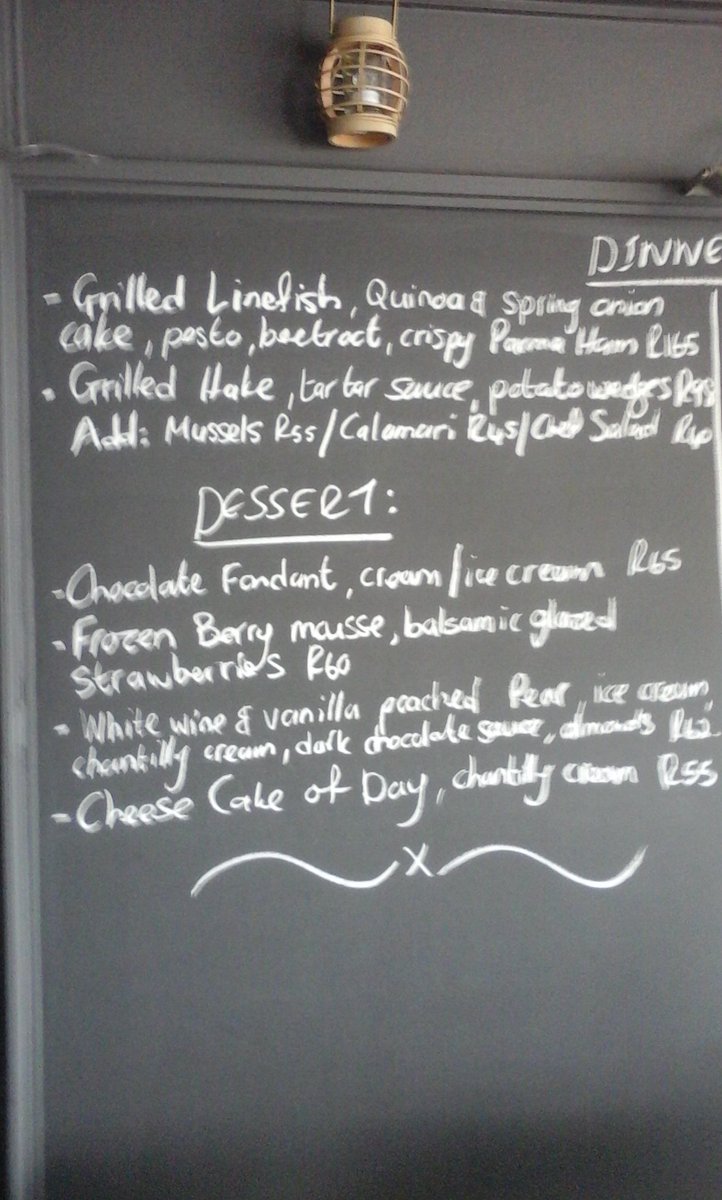 DINNE
- Grilled Linefish, Quinoa & Spring onion
cake, pesto, beetroot, crispy Parma Ham R165
- Grilled Hake, tartar sauce, potato wedges
Add: Mussels R55/Calamari R45/Chef Salad R40
DESSERT:
- Chocolate Fondant, cream/ice cream R65
- Frozen Berry mousse, balsamic glazed
Strawberries R60
- White wine & vanilla poached Pear, ice cream,
chantilly cream, dark chocolate sauce, almonds
- Cheese Cake of Day, chantilly cream R55
X